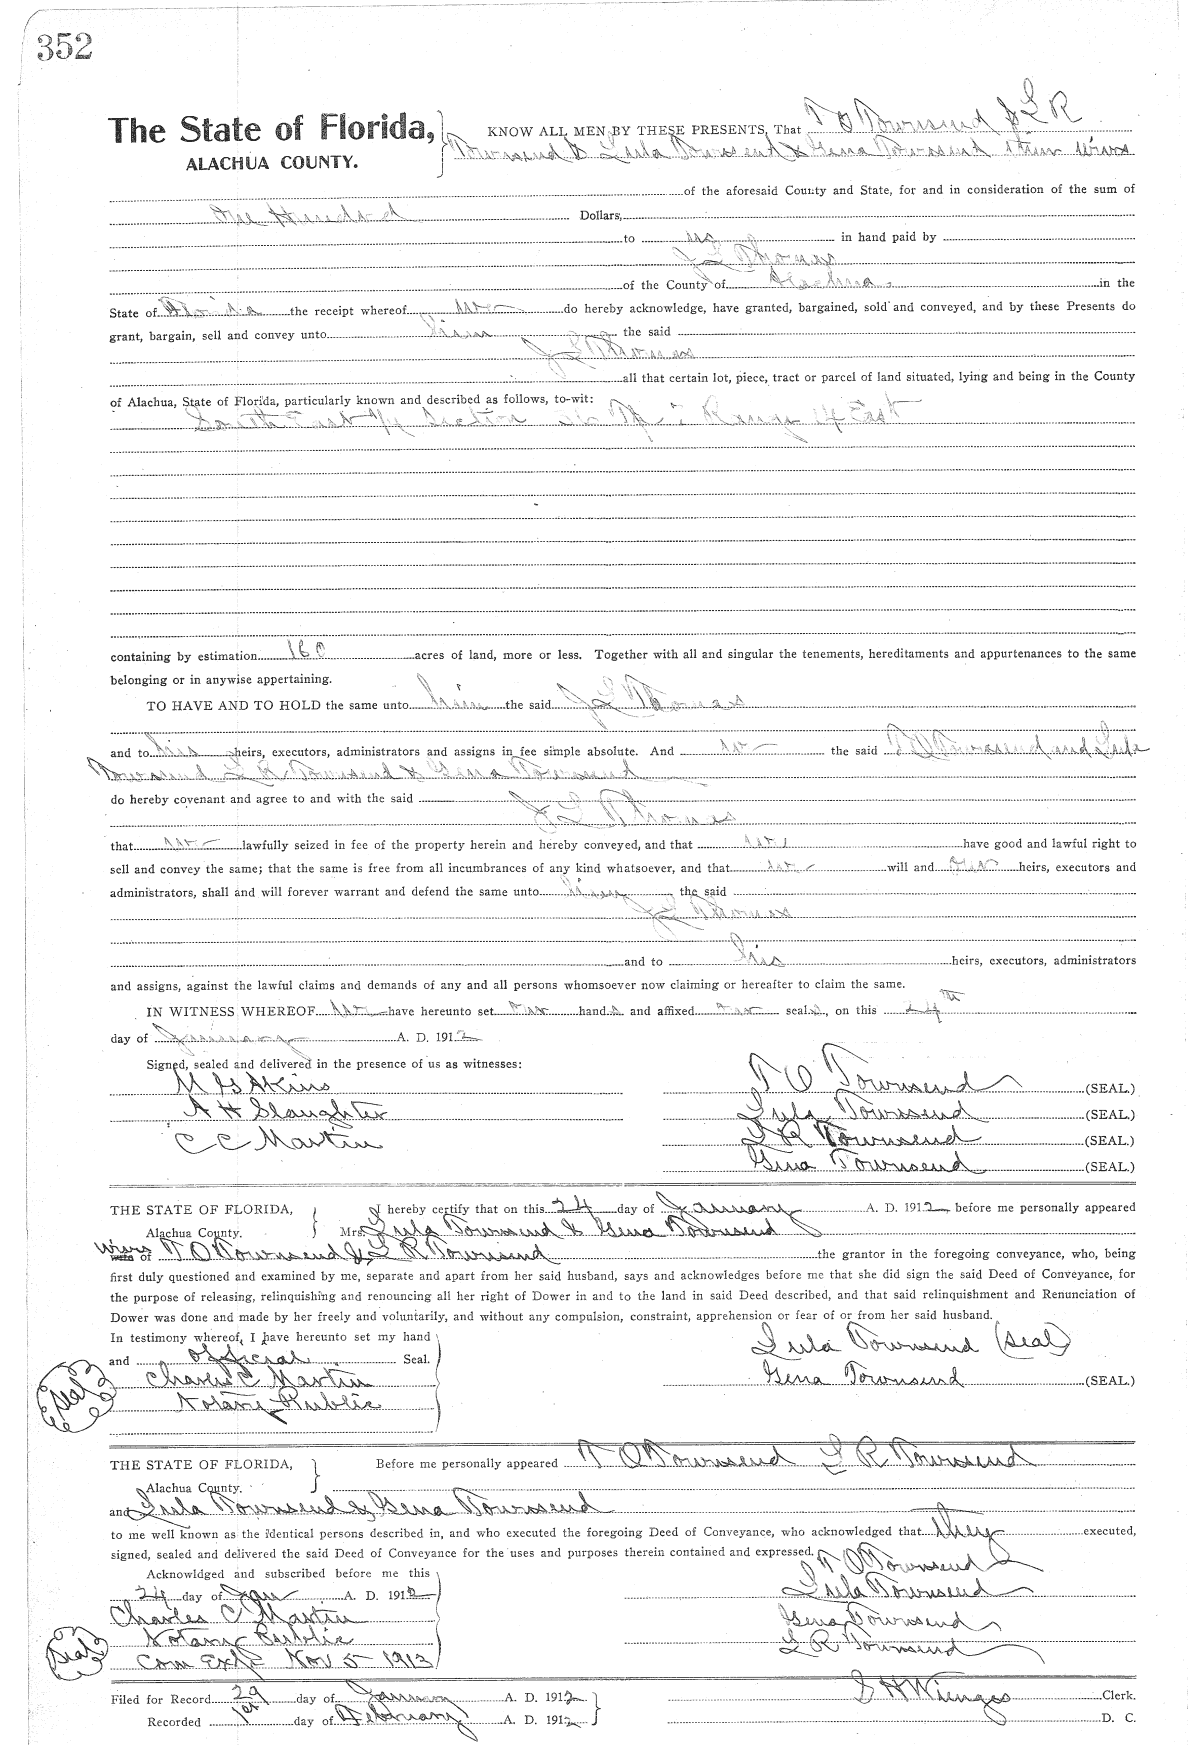 352
The State of Florida, KNOW ALL MEN BY THESE PRESENTS, That T O Townsend & L R
ALACHUA COUNTY. Townsend & Lula Townsend & Gena Townsend their wives
of the aforesaid County and State, for and in consideration of the sum of
One Hundred Dollars,
to us in hand paid by
J L Thomas
of the County of Alachua in the
State of Florida the receipt whereof we do hereby acknowledge, have granted, bargained, sold and conveyed, and by these Presents do
grant, bargain, sell and convey unto him the said
J L Thomas
all that certain lot, piece, tract or parcel of land situated, lying and being in the County
of Alachua, State of Florida, particularly known and described as follows, to-wit:
South East 1/4 Section Range 14 East
containing by estimation 160 acres of land, more or less. Together with all and singular the tenements, hereditaments and appurtenances to the same
belonging or in anywise appertaining.
TO HAVE AND TO HOLD the same unto him the said J L Thomas
and to his heirs, executors, administrators and assigns in fee simple absolute. And we the said T O Townsend and Lula
Townsend L R Townsend & Gena Townsend
do hereby covenant and agree to and with the said
J L Thomas
that we lawfully seized in fee of the property herein and hereby conveyed, and that we have good and lawful right to
sell and convey the same; that the same is free from all incumbrances of any kind whatsoever, and that we will and our heirs, executors and
administrators, shall and will forever warrant and defend the same unto him the said
J L Thomas
and to his heirs, executors, administrators
and assigns, against the lawful claims and demands of any and all persons whomsoever now claiming or hereafter to claim the same.
IN WITNESS WHEREOF we have hereunto set our hands and affixed our seals, on this 24th
day of January A. D. 1912
Signed, sealed and delivered in the presence of us as witnesses:
M G Akins T O Townsend (SEAL.)
A H Slaughter Lula Townsend (SEAL.)
C C Martin L R Townsend (SEAL.)
Gena Townsend (SEAL.)
THE STATE OF FLORIDA, I hereby certify that on this 24 day of January A. D. 1912 before me personally appeared
Alachua County. Mrs. Lula Townsend & Gena Townsend
wives of T O Townsend & L R Townsend the grantor in the foregoing conveyance, who, being
first duly questioned and examined by me, separate and apart from her said husband, says and acknowledges before me that she did sign the said Deed of Conveyance, for
the purpose of releasing, relinquishing and renouncing all her right of Dower in and to the land in said Deed described, and that said relinquishment and Renunciation of
Dower was done and made by her freely and voluntarily, and without any compulsion, constraint, apprehension or fear of or from her said husband.
In testimony whereof, I have hereunto set my hand Lula Townsend (Seal)
and official Seal.
Seal Charles C Martin Gena Townsend (SEAL.)
Notary Public
THE STATE OF FLORIDA, Before me personally appeared T O Townsend L R Townsend
Alachua County.
and Lula Townsend & Gena Townsend
to me well known as the identical persons described in, and who executed the foregoing Deed of Conveyance, who acknowledged that they executed,
signed, sealed and delivered the said Deed of Conveyance for the uses and purposes therein contained and expressed.
Acknowldged and subscribed before me this T O Townsend
24 day of Jan A. D. 1912 Lula Townsend
Charles C Martin Gena Townsend
Seal Notary Public L R Townsend
Com Exp Nov 5 1913
Filed for Record 29 day of January A. D. 1912 S H Wienges Clerk.
Recorded 1st day of February A. D. 1912 D. C.